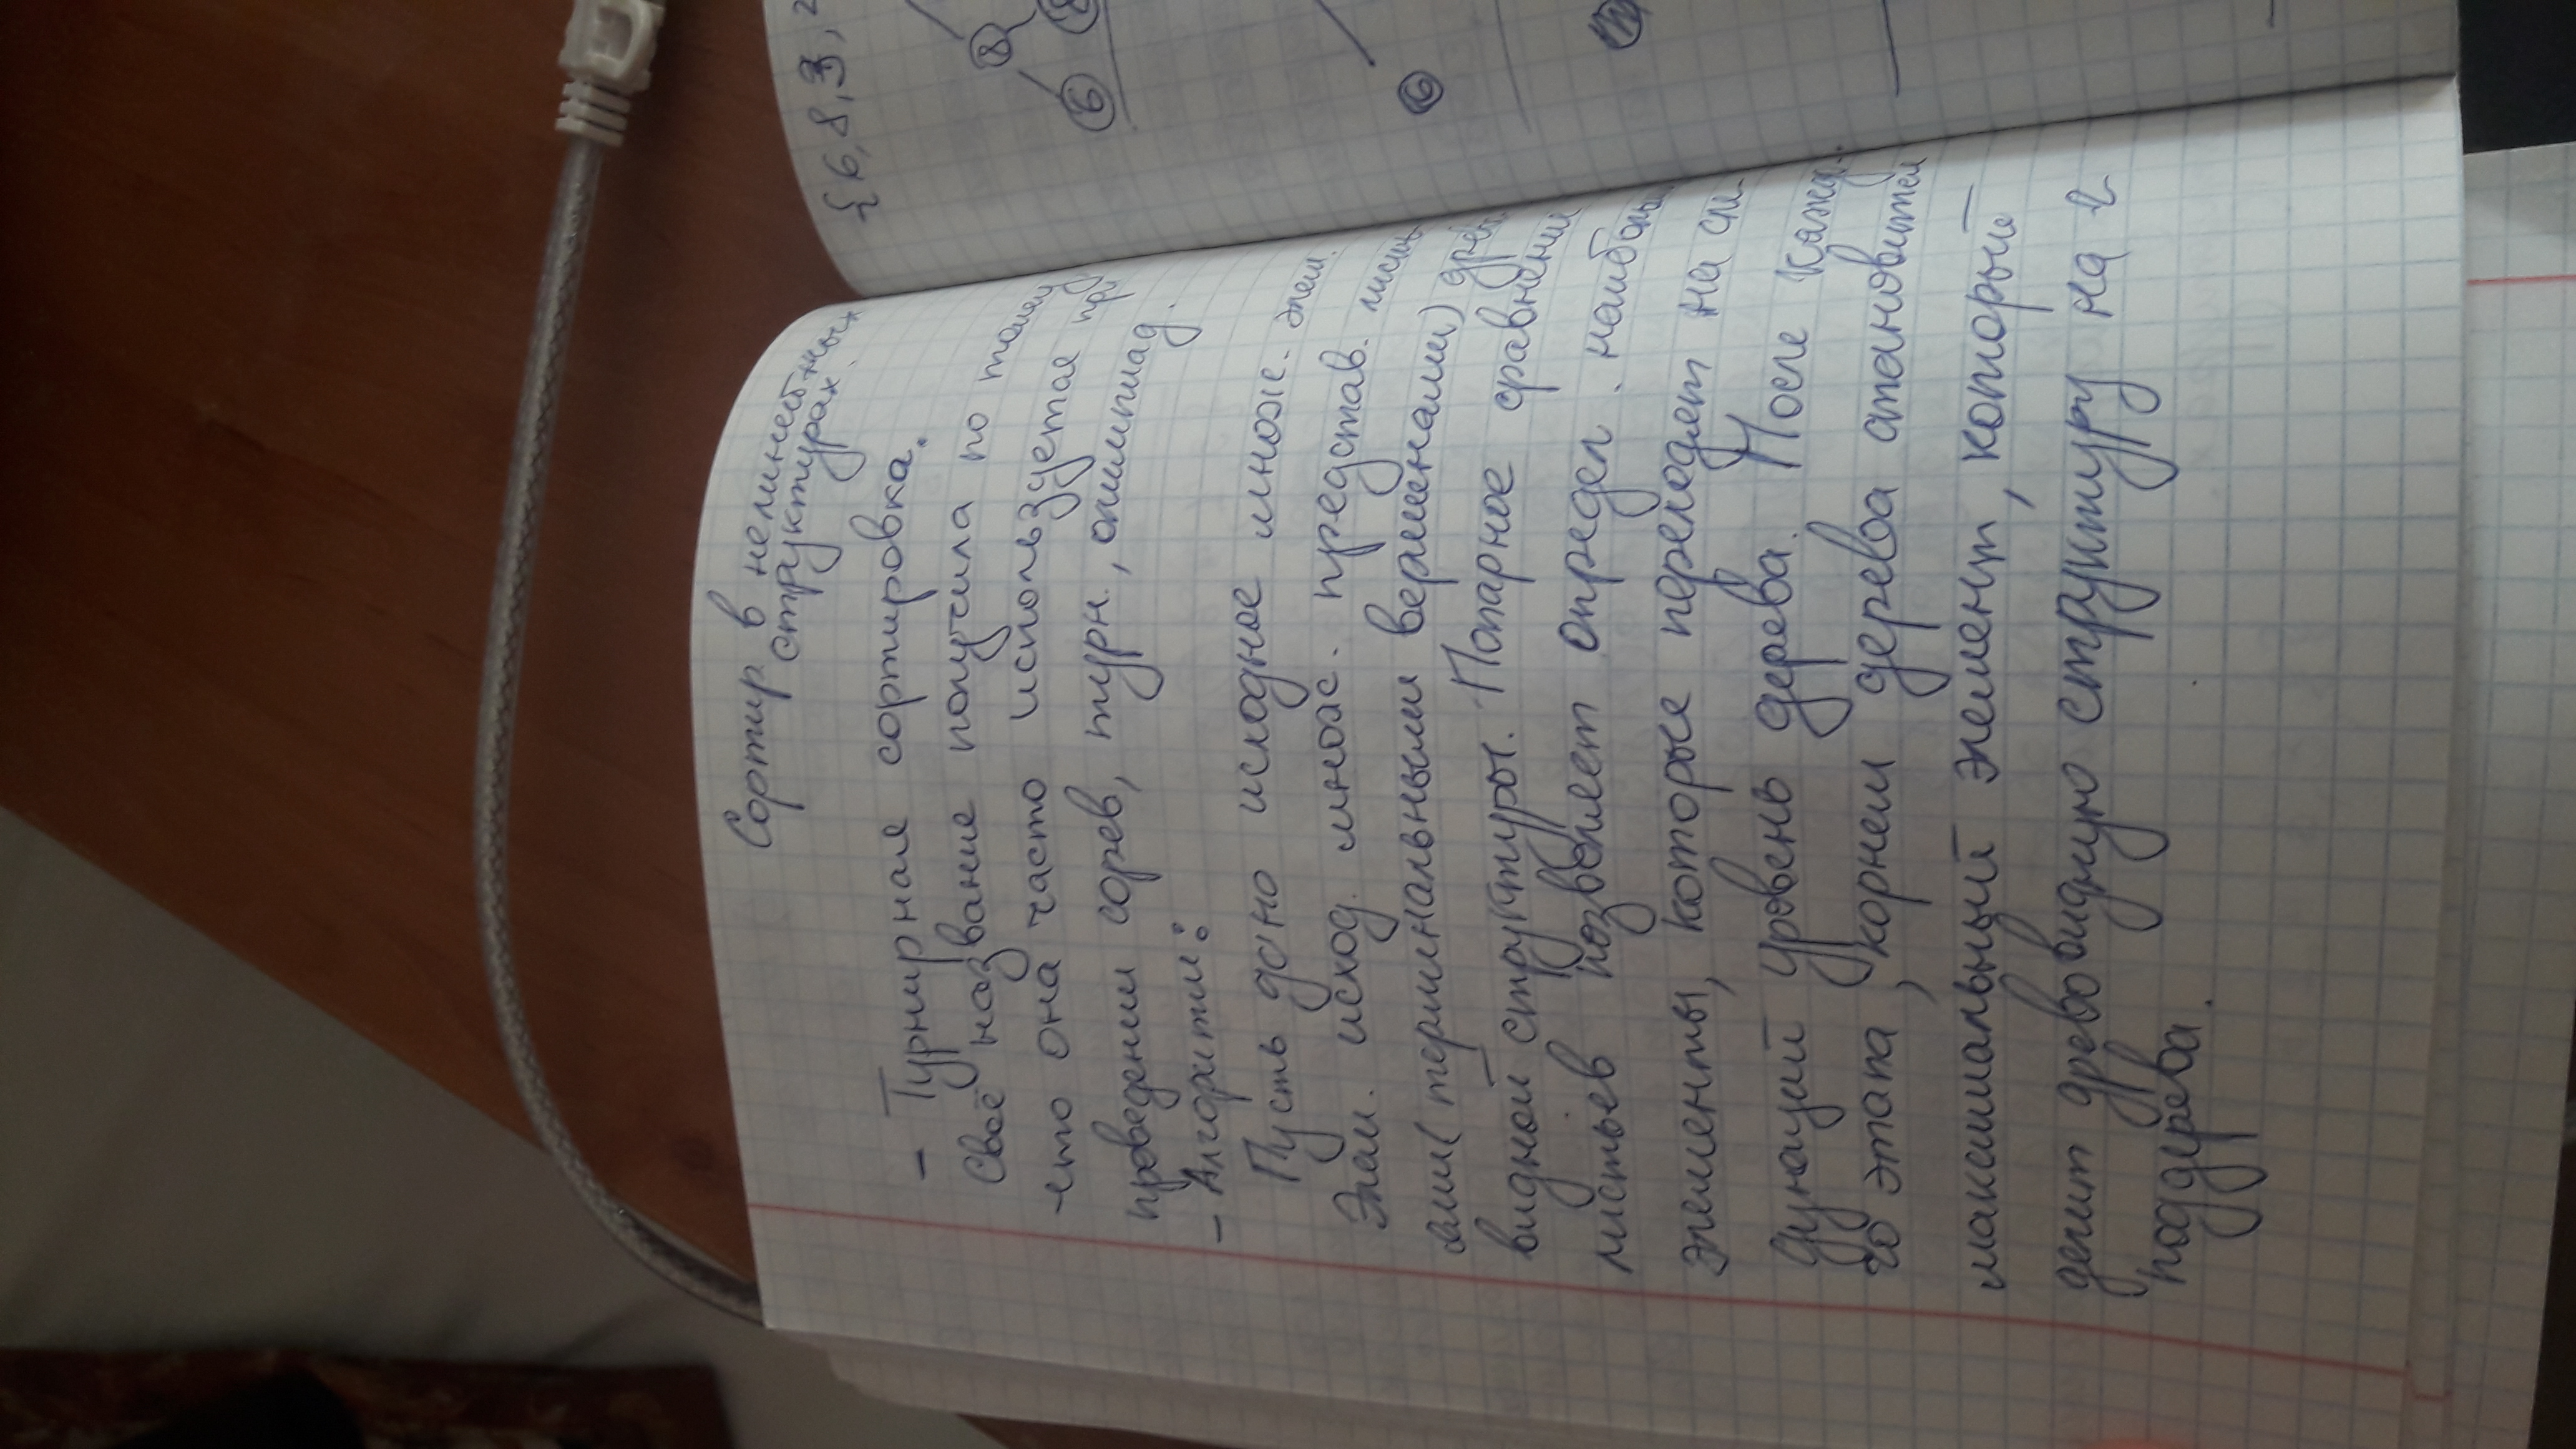 Сортир. в нелинейных
структурах.
- Турнирная сортировка.
Своё название получила по тому
что она часто используется при
проведении сорев, турн., олимпиад.
- Алгоритм:
Пусть дано исходное множ. элем.
Элем. исход. множ. представ. листь
ями (терминальными вершинами) древо-
видной структуры. Попарное сравнение
листьев позволяет определ. наибольш
элементы, которые переходят на сле-
дующий уровень дерева. После каждо-
го этапа, корнем дерева становится
максимальный элемент, который
делит древовидную структуру на 2
поддерева.
{6, 8, 3, 2
8
6 8
6